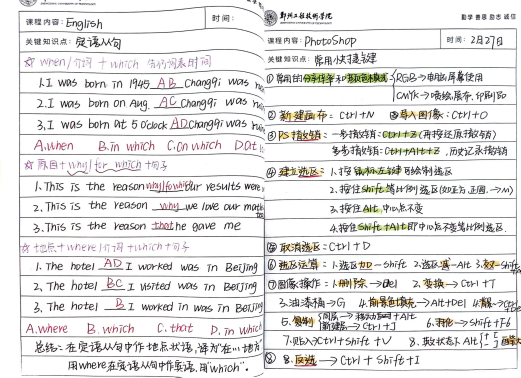 课程内容: English
时间:
关键知识点: 定语从句
☆ when/介词 + which 先行词表时间
1.I was born in 1945 AB Changqi was
2.I was born on Aug. AC Changqi was
3.I was born at 5 o'clock AD Changqi was
A.when B.in which C.on which D.at
☆ 原因 + why/for which + 句子
1.This is the reason why/for which our results were
2.This is the reason why we love our
3.This is the reason that he gave me
☆ 地点 + where/介词 + which + 句子
1.The hotel AD I worked was in Beijing
2.The hotel BC I visited was in Beijing
3.The hotel B I worked in was in Beijing
A.where B.which C.that D.in which
总结: 在定语从句中作地点状语, 译为"在…地方"
用where在定语从句中作宾语, 用"which".
勤学 善思 励志 诚信
课程内容: PhotoShop
时间: 2月27日
关键知识点: 常用/快捷键
RGB→电脑屏幕使用
CMYK→喷绘展布.印刷品
②新建画布: Ctrl+N ③导入图像: Ctrl+O
③PS撤销: 一步撤销: Ctrl+Z (再按还原撤销)
多步撤销: Ctrl+Alt+Z, 历史记录撤销
④建立选区: 1.按鼠标左键可绘制选区
2.按住shift等比例选区
3.按住Alt 中心点不变
4.按住Shift+Alt即中心点不变等比例选区.
⑤取消选区: Ctrl+D
⑥选区运算: 1.选区加-Shift 2.选区减-Alt
⑦图像操作: 1.删除→Del 2.变换→Ctrl+T
3.油漆桶→G 4.前景色填充→Alt+Del
5.复制
Ctrl+J
7.贴入→Ctrl+Shift+V
8.反选→Ctrl+Shift+I